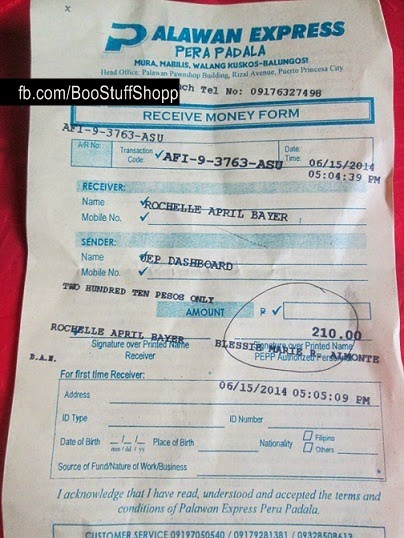 x
PALAWAN EXPRESS
PERA PADALA
MURA, MABILIS, WALANG KUSKOS-BALUNGOS!
Head Office: Palawan Pawnshop Building, Rizal Avenue, Puerto Princesa City
fb.com/BooStuffShopp
Tel No: 09176327498
RECEIVE MONEY FORM
AFI-9-3763-ASU
A/R No:
Transaction Code: AFI-9-3763-ASU
Date:
Time:
06/15/2014
05:04:39 PM
RECEIVER:
Name ROCHELLE APRIL BAYER
Mobile No.
SENDER:
Name UEP DASHBOARD
Mobile No.
TWO HUNDRED TEN PESOS ONLY
AMOUNT ₱
210.00
ROCHELLE APRIL BAYER
BLESSIE MARIE R. ALMONTE
Signature over Printed Name
Receiver
Signature over Printed Name
PEPP Authorized Personnel
B.A.N.
For first time Receiver:
06/15/2014 05:05:09 PM
Address
ID Type
ID Number
Date of Birth __/__/__ Place of Birth
mm / dd / yy
Nationality
Filipino
Others
Source of Fund/Nature of Work/Business
I acknowledge that I have read, understood and accepted the terms and
conditions of Palawan Express Pera Padala.
CUSTOMER SERVICE 09197050540 / 09179281381 / 09328508613